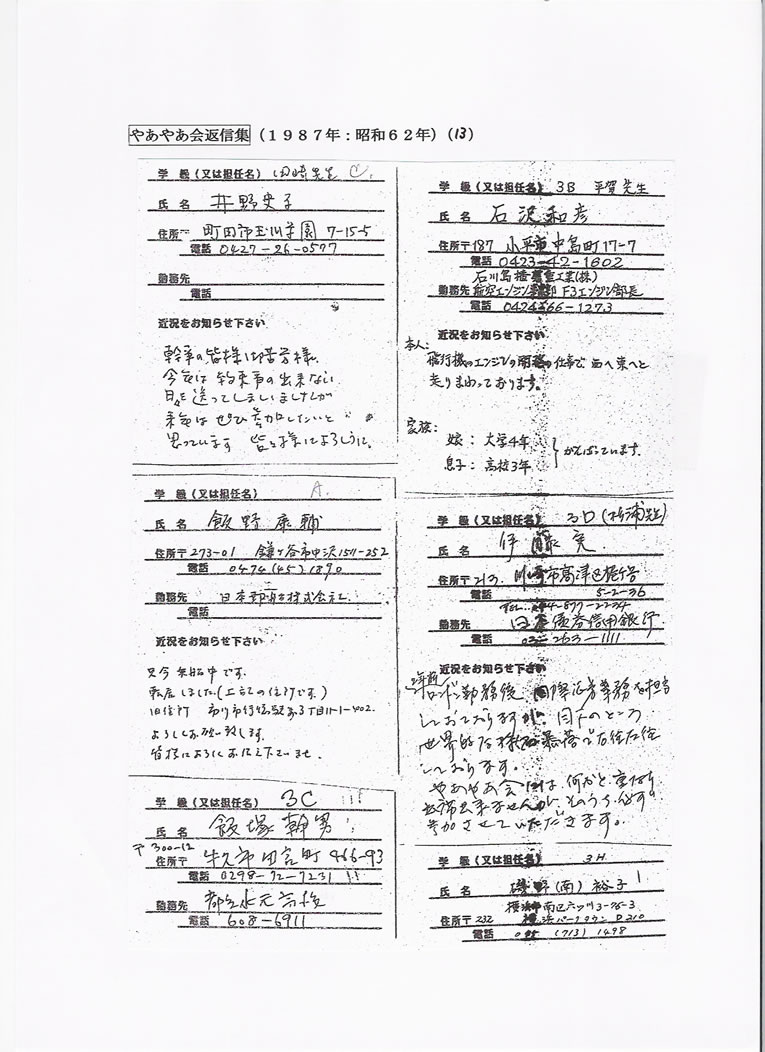 やあやあ会返信集（１９８７年：昭和６２年）（13）
学 級（又は担任名） 田崎先生 C
氏 名 井野史子
住所〒 町田市玉川学園 7-15-5
電話 0427-26-0577
勤務先
電話
近況をお知らせ下さい
幹事の皆様御苦労様。
今年は約束事の出来ない
日々を送ってしまいましたが
来年はぜひ参加したいと
思っています 皆々様によろしく。
学 級（又は担任名） A.
氏 名 飯野康輔
住所〒 273-01 鎌ヶ谷市中沢1511-252
電話 0474(45)1890
勤務先 日本郵船株式会社
電話
近況をお知らせ下さい
只今 乗船中です。
転居しました(上記の住所です)
旧住所 市川市行徳駅前3丁目11-1-402.
よろしくお願い致します。
皆様によろしくお伝え下さいませ。
学 級（又は担任名） 3C
氏 名 飯塚幹男
〒300-12
住所〒 牛久市田宮町 466-93
電話 0298-72-7231
勤務先 都立水元高校
電話 608-6911
学 級（又は担任名） 3B 平賀先生
氏 名 石沢和彦
住所〒187 小平市中島町17-7
電話 0423-42-1602
石川島播磨重工業(株)
勤務先 航空エンジン事業部 F3エンジン部長
電話 0424-66-1273
近況をお知らせ下さい
本人：
飛行機のエンジンの開発の仕事で、西へ東へと
走りまわっております。
家族：
娘：大学4年
息子：高校3年
がんばっています。
学 級（又は担任名） 3D (杉浦先生)
氏 名 伊藤 寛
住所〒213. 川崎市高津区梶ヶ谷
5-2-36
電話 TEL. 044-877-2234
勤務先 日本債券信用銀行
電話 03-263-1111
近況をお知らせ下さい
2年前
ロンドン勤務後 国際証券業務を担当
しておりますが、目下のところ
世界的な株価暴落で右往左往
しております。
やあやあ会には何かと重なり
出席出来ませんが、そのうち必ず
参加させていただきます。
学 級（又は担任名） 3H
氏 名 磯野(南) 裕子
横浜市南区六ッ川3-76-3
住所〒232 横浜パークタウン D210
電話 045 (713) 1498